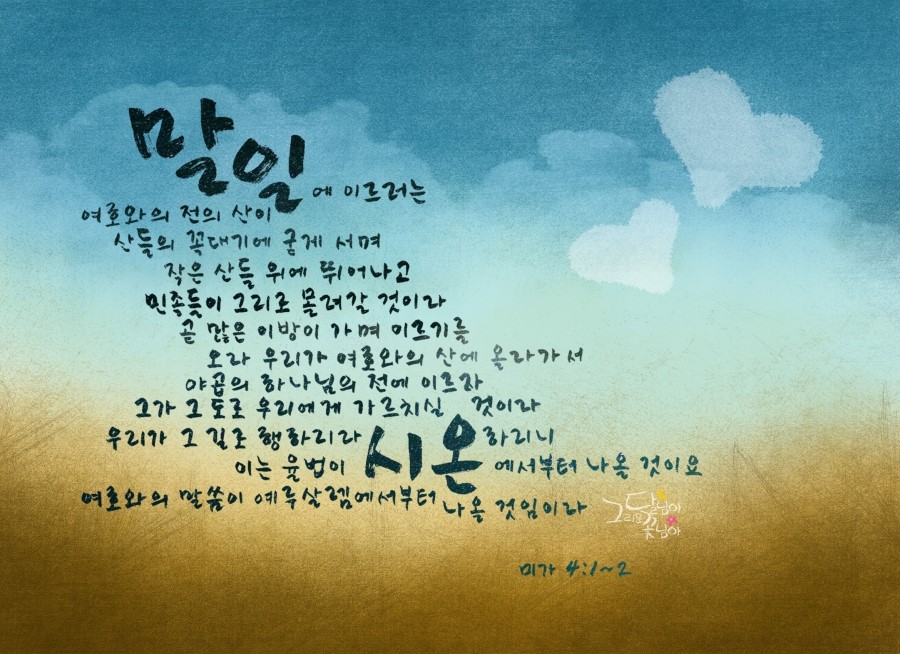 말일에 이르러는
여호와의 전의 산이
산들의 꼭대기에 굳게 서며
작은 산들 위에 뛰어나고
민족들이 그리로 몰려갈 것이라
곧 많은 이방이 가며 이르기를
오라 우리가 여호와의 산에 올라가서
야곱의 하나님의 전에 이르자
그가 그 도로 우리에게 가르치실 것이라
우리가 그 길로 행하리라 하리니
이는 율법이 시온에서부터 나올 것이요
여호와의 말씀이 예루살렘에서부터 나올 것임이라
달님아
꽃님아
미가 4:1~2